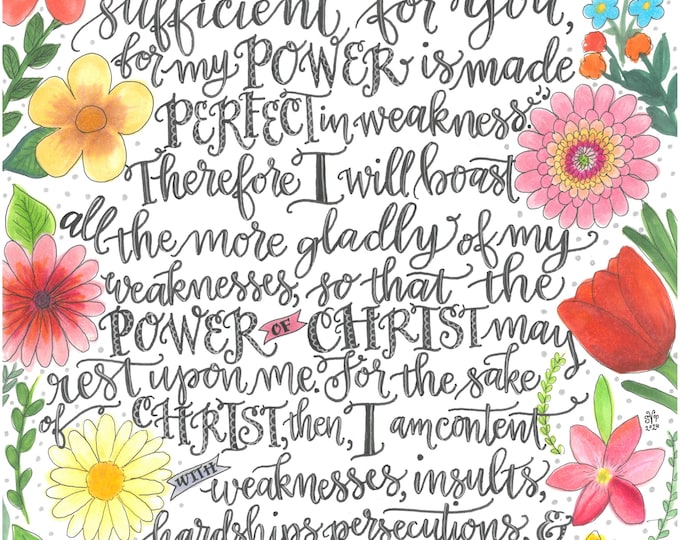 sufficient for you,
for my POWER is made
PERFECT in weakness.
Therefore I will boast
all the more gladly of my
weaknesses, so that the
POWER OF CHRIST may
rest upon me. For the sake
of CHRIST, then, I am content
WITH weaknesses, insults,
hardships, persecutions, &
2020